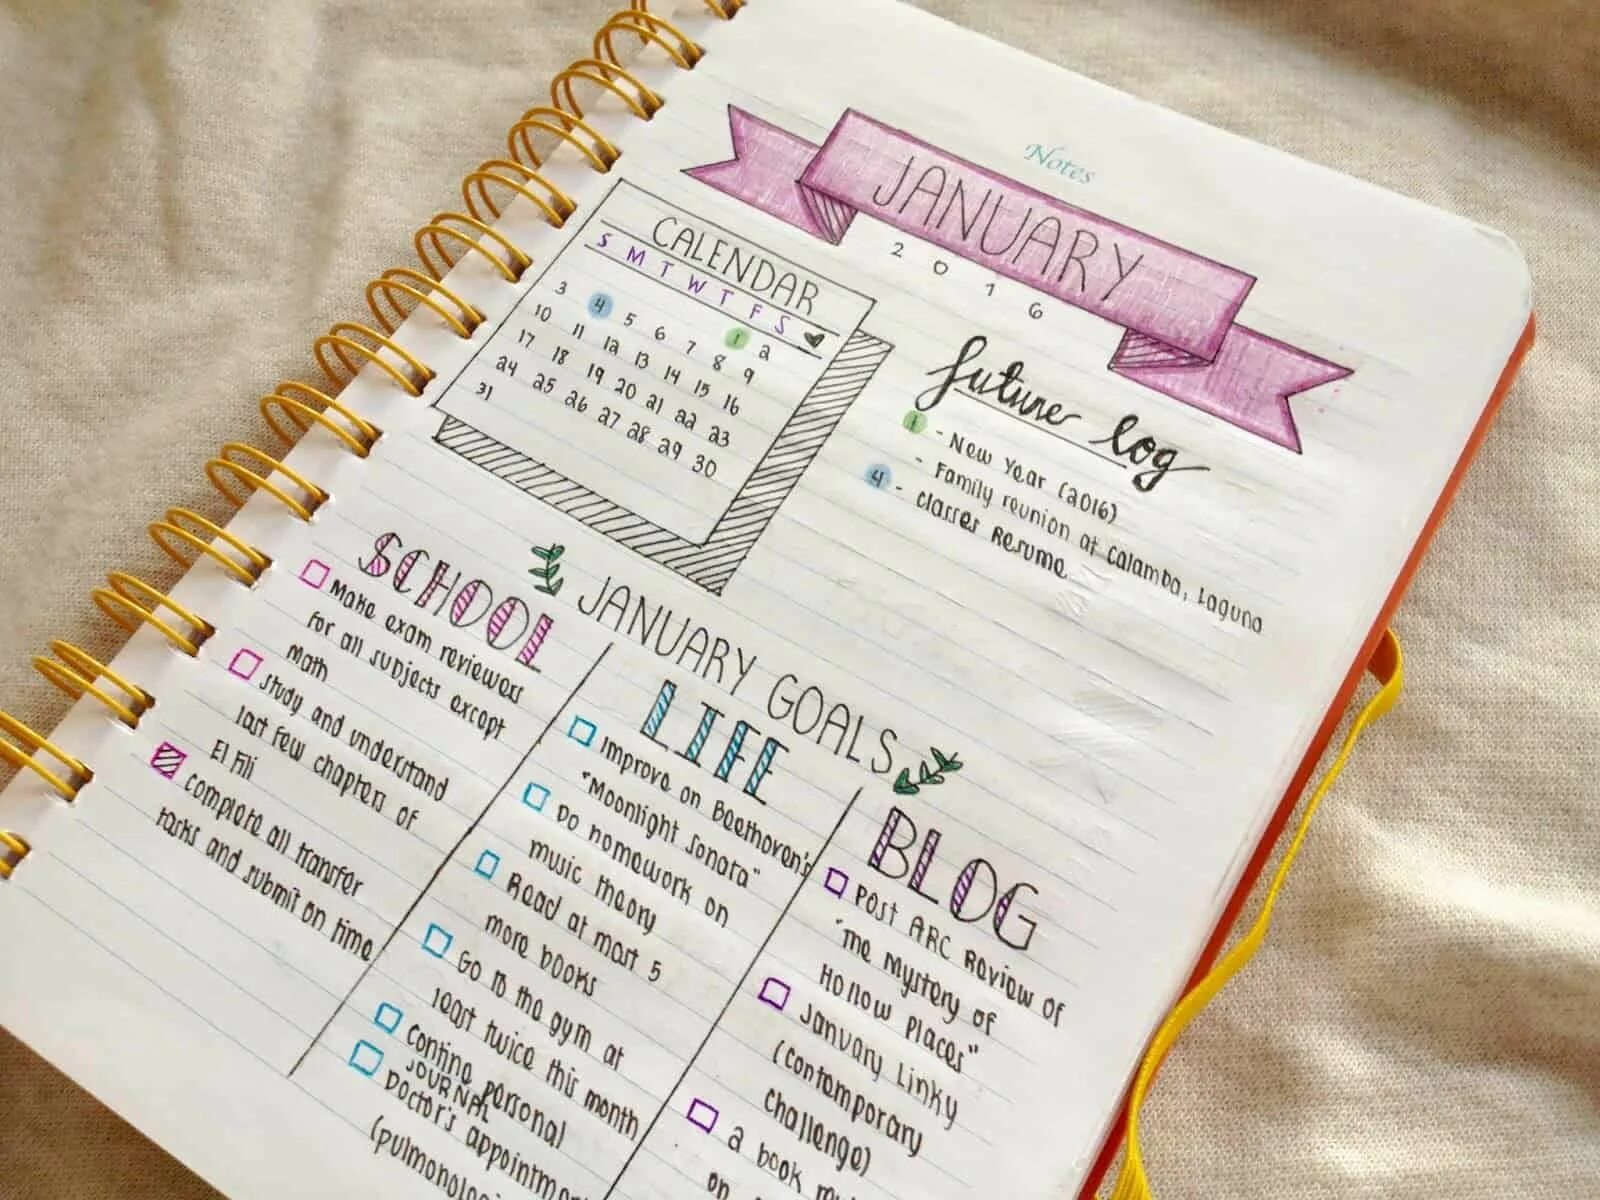 Notes
JANUARY
2016
CALENDAR
S M T W T F S
1 2
3 4 5 6 7 8 9
10 11 12 13 14 15 16
17 18 19 20 21 22 23
24 25 26 27 28 29 30
31
future log
1 - New Year (2016)
- Family reunion at Calamba, Laguna
4 - Classes Resume
JANUARY GOALS
SCHOOL
Make exam reviewers
for all subjects except
Math
Study and understand
last few chapters of
El Fili
complete all transfer
tasks and submit on time
LIFE
Improve on Beethoven's
"Moonlight Sonata"
Do homework on
music theory
Read at most 5
more books
Go to the gym at
least twice this month
Contine personal
JOURNAL
Doctor's appointmen
(pulmonologi
BLOG
Post ARC Review of
"The Mystery of
Hollow Places"
January Linky
(contemporary
challenge)
a book
on